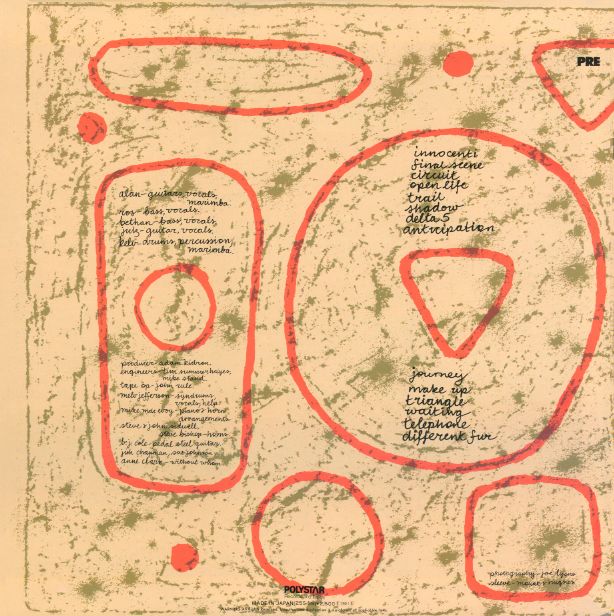 PRE
innocenti
final scene
circuit
open life
trail
shadow
delta 5
anticipation
alan-guitars, vocals,
marimba.
ros-bass, vocals.
bethan-bass, vocals,
julz-guitar, vocals.
kelv-drums, percussion,
marimba.
producer-adam kidron.
engineers-tim summerhayes,
mike stand
tape op-john rule
melv jefferson-syndrums
vocals, help
mike mac evoy-piano & horn
arrangements
steve & john sidwell,
steve bishop-horns
b.j. cole-pedal steel guitar
jim chapman,
anne clark-without whom
journey
make up
triangle
waiting
telephone
different fur
photography-joe lyons
sleeve-
POLYSTAR
MADE IN JAPAN